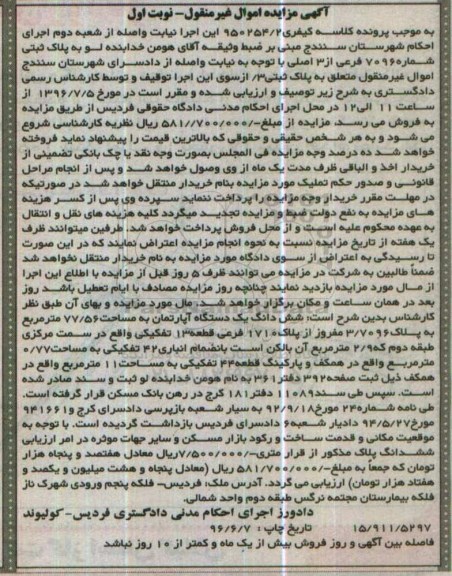 آگهی مزایده اموال غیرمنقول- نوبت اول
به موجب پرونده کلاسه کیفری۹۵۰۲۵۴/۲ این اجرا نیابت واصله از شعبه دوم اجرای
احکام شهرستان سنندج مبنی بر ضبط وثیقه آقای هومن خدابنده لو به پلاک ثبتی
شماره۷۰۹۶ فرعی از۳ اصلی با توجه به نیابت واصله از دادسرای شهرستان سنندج
اموال غیرمنقول متعلق به پلاک ثبتی۳/ ازسوی این اجرا توقیف و توسط کارشناس رسمی
دادگستری به شرح زیر توصیف و ارزیابی شده و مقرر است در مورخ ۱۳۹۶/۷/۵ از
ساعت ۱۱ الی۱۲ در محل اجرای احکام مدنی دادگاه حقوقی فردیس از طریق مزایده
به فروش می رسد. مزایده از مبلغ-/۵۸۱/۷۰۰/۰۰۰ ریال نظریه کارشناسی شروع
می شود و به هر شخص حقیقی و حقوقی که بالاترین قیمت را پیشنهاد نماید فروخته
خواهد شد ده درصد وجه مزایده فی المجلس بصورت وجه نقد یا چک بانکی تضمینی از
خریدار اخذ و الباقی ظرف مدت یک ماه از وی وصول خواهد شد و پس از انجام مراحل
قانونی و صدور حکم تملیک مورد مزایده بنام خریدار منتقل خواهد شد در صورتیکه
در مهلت مقرر خریدار وجه مزایده را پرداخت ننماید سپرده وی پس از کسر هزینه
های مزایده به نفع دولت ضبط و مزایده تجدید میگردد کلیه هزینه های نقل و انتقال
به عهده محکوم علیه است و از محل فروش پرداخت خواهد شد. طرفین میتوانند ظرف
یک هفته از تاریخ مزایده نسبت به نحوه انجام مزایده اعتراض نمایند که در این صورت
تا رسیدگی به اعتراض از سوی دادگاه مورد مزایده به نام خریدار منتقل نخواهد شد
ضمناً طالبین به شرکت در مزایده می توانند ظرف ۵ روز قبل از مزایده با اطلاع این اجرا
از مال مورد مزایده بازدید نمایند چنانچه روز مزایده مصادف با ایام تعطیل باشد روز
بعد در همان ساعت و مکان برگزار خواهد شد. مال مورد مزایده و بهای آن طبق نظر
کارشناس بدین شرح است: شش دانگ یک دستگاه آپارتمان به مساحت۷۷/۵۶ مترمربع
به پلاک۳/۷۰۹۶ مفروز از پلاک۱۷۱۰ فرعی قطعه۱۳ تفکیکی واقع در سمت مرکزی
طبقه دوم که۲/۹ مترمربع آن بالکن است بانضمام انباری۴۲ تفکیکی به مساحت۰/۷۷
مترمربع واقع در همکف و پارکینگ قطعه۴۴ تفکیکی به مساحت۱۱ مترمربع واقع در
همکف ذیل ثبت صفحه۳۹۲ دفتر۳۶۱ به نام هومن خدابنده لو ثبت و سند صادر شده
است. سپس طی سند۱۱۰۸۹ دفتر۱۸۱ کرج در رهن بانک مسکن قرار گرفته است.
طی نامه شماره۲۴ مورخ۹۲/۹/۱۸ به سیار شعبه بازپرسی دادسرای کرج و۹۴۱۶۶۱
مورخ۹۴/۵/۲۷ دادیار شعبه۶ دادسرای فردیس بازداشت گردیده است. با توجه به
موقعیت مکانی و قدمت ساخت و رکود بازار مسکن و سایر جهات موثره در امر ارزیابی
ششدانگ پلاک مذکور از قرار متری-/۷/۵۰۰/۰۰۰ریال معادل هفتصد و پنجاه هزار
تومان که جمعاً به مبلغ-/۵۸۱/۷۰۰/۰۰۰ ریال (معادل پنجاه و هشت میلیون و یکصد و
هفتاد هزار تومان) ارزیابی می گردد. آدرس ملک: فردیس- فلکه پنجم ورودی شهرک ناز
فلکه بیمارستان مجتمه نرگس طبقه دوم واحد شمالی.
دادورز اجرای احکام مدنی دادگستری فردیس- کولیوند
۱۵/۹۱۱/۵۲۹۷ تاریخ چاپ : ۹۶/۶/۷
فاصله بین آگهی و روز فروش بیش از یک ماه و کمتر از ۱۰ روز نباشد